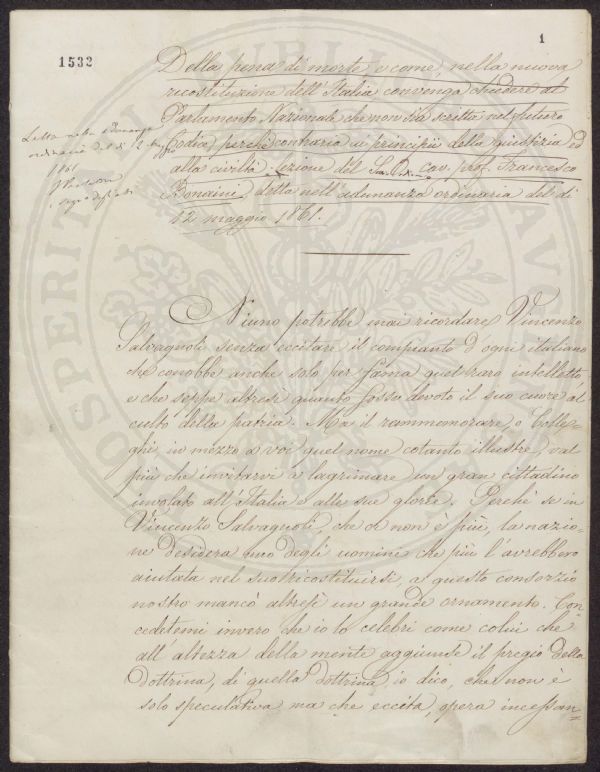 1
1532
Della pena di morte, e come, nella nuova
ricostituzione dell'Italia convenga chiedere al
Parlamento Nazionale che non sia scritta nel futuro
Codice, perchè contraria ai principii della giustizia ed
alla civiltà. Lezione del S. O. cav. prof. Francesco
Bonaini, detta nell'adunanza ordinaria del dì
12 maggio 1861.
Letta nella adunanza
ordinaria del dì 12 maggio
1861
Niuno potrebbe mai ricordare Vincenzo
Salvagnoli senza eccitare il compianto d'ogni italiano
che conobbe anche solo per fama quel raro intelletto,
e che seppe altresì quanto fosse devoto il suo cuore al
culto della patria. Ma il rammemorare, o Colle-
ghi, in mezzo a voi quel nome cotanto illustre, val
più che invitarvi a lagrimare un gran cittadino
involato all'Italia e alle sue glorie. Perchè se in
Vincenzo Salvagnoli, che or non è più, la nazio-
ne desidera uno degli uomini che più l'avrebbero
aiutata nel suo ricostituirsi, a questo consorzio
nostro mancò altresì un grande ornamento. Con-
cedetemi invero che io lo celebri come colui che
all'altezza della mente aggiunse il pregio della
dottrina, di quella dottrina, io dico, che non è
solo speculativa ma che eccita, opera incessan-
OSPERITA